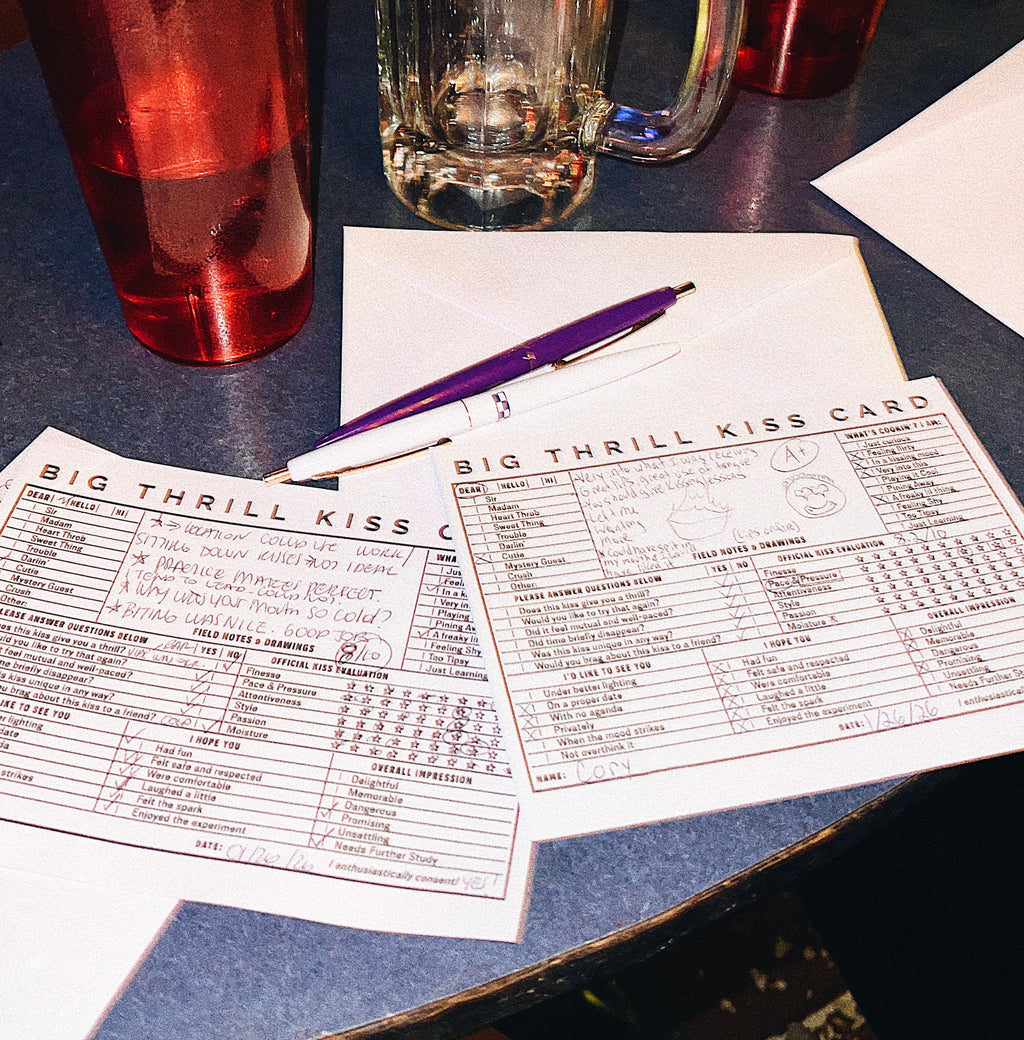 BIG THRILL KISS C
DEAR HELLO NI
Sir
Madam
Heart Throb
Sweet Thing
Trouble
Darlin'
Cutie
Mystery Guest
Crush
Other:
LOCATION COULD USE WORK/
SITTING DOWN KISSES NOT IDEAL
PRACTICE MAKES PERFECT
TEND TO LEAD
WHY WAS YOUR MOUTH SO COLD?
BITING WAS NICE, GOOD JOB
8/10
FIELD NOTES & DRAWINGS
WHA
Just
Feelin
In a k
Very in
Playing
Pining Aw
A freaky lil
Feeling Shy
Too Tipsy
Just Learning
PLEASE ANSWER QUESTIONS BELOW
YES NO
Does this kiss give you a thrill?
ould you like to try that again?
feel mutual and well-paced?
me briefly disappear?
kiss unique in any way?
u brag about this kiss to a friend?
COLD!
OFFICIAL KISS EVALUATION
Finesse
Pace & Pressure
Attentiveness
Style
Passion
Moisture
LIKE TO SEE YOU
r lighting
date
da
strikes
I HOPE YOU
Had fun
Felt safe and respected
Were comfortable
Laughed a little
Felt the spark
Enjoyed the experiment
OVERALL IMPRESSION
Delightful
Memorable
Dangerous
Promising
Unsettling
Needs Further Study
DATE: 01/26/26
I enthusiastically consent! YES!
BIG THRILL KISS CARD
DEAR HELLO NI
Sir
Madam
Heart Throb
Sweet Thing
Trouble
Darlin'
Cutie
Mystery Guest
Crush
Other:
Very into what I was receiving
Great use of tongue
Let me
move
A+
FIELD NOTES & DRAWINGS
WHAT'S COOKIN'? I AM:
Just curious
Feeling flirty
In a kissing mood
Very into this
Playing it Cool
Pining Away
A freaky lil thing
Feeling Shy
Too Tipsy
Just Learning
PLEASE ANSWER QUESTIONS BELOW
YES NO
Does this kiss give you a thrill?
Would you like to try that again?
Did it feel mutual and well-paced?
Did time briefly disappear?
Was this kiss unique in any way?
Would you brag about this kiss to a friend?
OFFICIAL KISS EVALUATION
Finesse
Pace & Pressure
Attentiveness
Style
Passion
Moisture
I'D LIKE TO SEE YOU
Under better lighting
On a proper date
With no agenda
Privately
When the mood strikes
Not overthink it
I HOPE YOU
Had fun
Felt safe and respected
Were comfortable
Laughed a little
Felt the spark
Enjoyed the experiment
OVERALL IMPRESSION
Delightful
Memorable
Dangerous
Promising
Unsettling
Needs Further Stud
NAME: Cory
DATE: 1/26/26
I enthusiastica